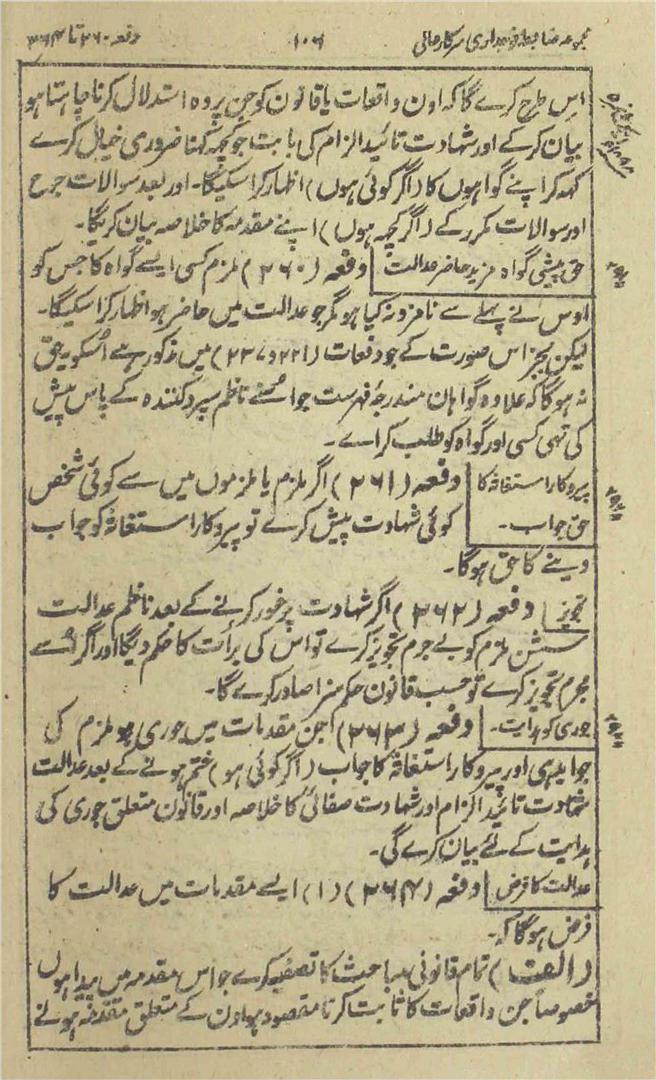 مجموعہ ضابطہ فوجداری سرکار عالی ۱۰۶ دفعہ ۲۶۰ تا ۲۶۴
اس طرح کرے گا کہ اون واقعات یا قانون کو جن پر وہ استدلال کرنا چاہتا ہو
بیان کرکے اور شہادت تائید الزام کی بابت جو کچھ کہنا ضروری خیال کرے
کہہ کر اپنے گواہوں کا (اگر کوئی ہوں) اظہار کرا سکیگا۔ اور بعد سوالات جرح
اور سوالات مکرر کے (اگر کچھ ہوں) اپنے مقدمہ کا خلاصہ بیان کریگا۔
حق پیشی گواہ مزید حاضر عدالت دفعہ (۲۶۰) ملزم کسی ایسے گواہ کا جس کو
اوس نے پہلے سے نامزد نہ کیا ہو مگر جو عدالت میں حاضر ہو اظہار کرا سکیگا۔
لیکن بجز اس صورت کے جو دفعات (۲۲۱ و ۲۳۷) میں مذکور ہے اُسکو یہ حق
نہ ہوگا کہ علاوہ گواہان مندرجہ فہرست جو اُسنے ناظم سپرد کنندہ کے پاس پیش
کی تھی کسی اور گواہ کو طلب کرائے۔
پیروکار استغاثہ کا دفعہ (۲۶۱) اگر ملزم یا ملزموں میں سے کوئی شخص
حق جواب۔ کوئی شہادت پیش کرے تو پیروکار استغاثہ کو جواب
دینے کا حق ہوگا۔
تجویز دفعہ (۲۶۲) اگر شہادت پر غور کرنے کے بعد ناظم عدالت
سشن ملزم کو بے جرم تجویز کرے تو اس کی برأت کا حکم دیگا اور اگر اُسے
مجرم تجویز کرے تو حسب قانون حکم سزا صادر کرے گا۔
جوری کو ہدایت۔ دفعہ (۲۶۳) جن مقدمات میں جوری ہو ملزم کی
جوابدہی اور پیروکار استغاثہ کا جواب (اگر کوئی ہو) ختم ہونے کے بعد عدالت
شہادت تائید الزام اور شہادت صفائی کا خلاصہ اور قانون متعلق جوری کی
ہدایت کے لئے بیان کرے گی۔
عدالت کا فرض دفعہ (۲۶۴) (۱) ایسے مقدمات میں عدالت کا
فرض ہوگا کہ۔
(الف) تمام قانونی مباحث کا تصفیہ کرے جو اس مقدمہ میں پیدا ہوں
خصوصاً جن واقعات کا ثابت کرنا مقصود ہو اون کے متعلق مقدمہ ہونے